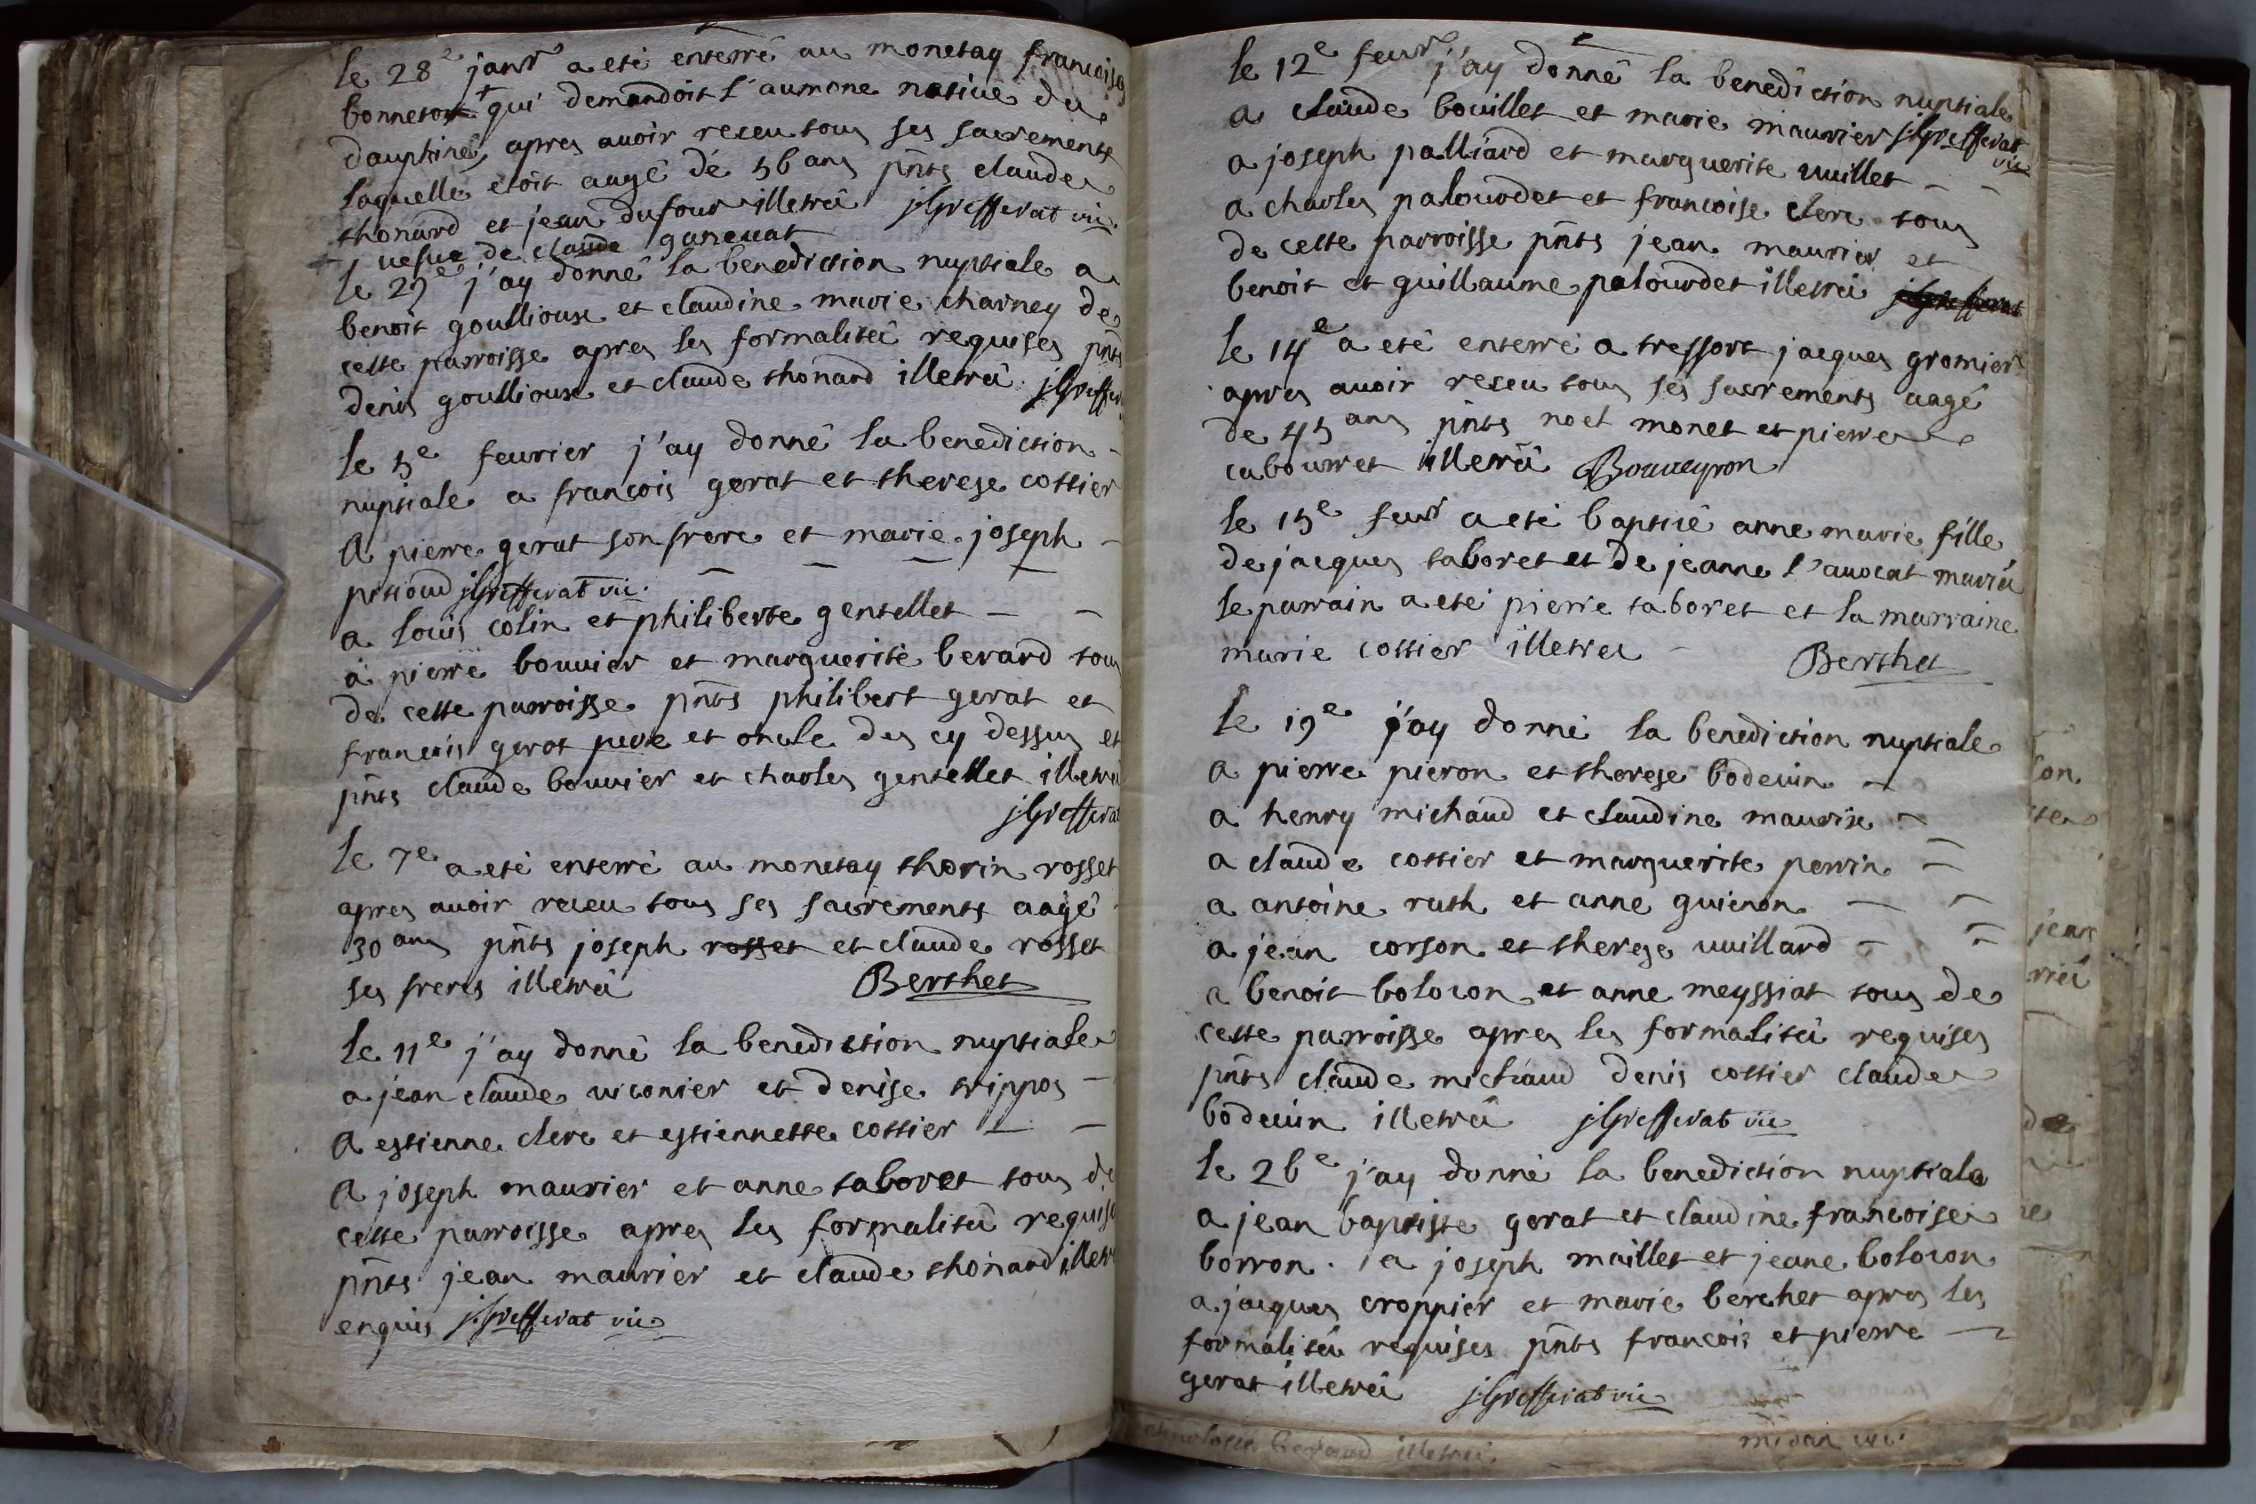 le 28e janvr a eté enterré au monetay francoise
bonneton + qui demandoit l'aumone native du
dauphiné, apres avoir receu tous ses sacrements
laquelle etoit aagé de 56 ans pnts claude
thonard et jean dufour illetré jGrefferat vic.
+ vefve de claude ganevat
le 29e j'ay donné la benediction nuptiale a
benoit goullioux et claudine marie charney de
cette parroisse apres les formalités requises pnts
denis goullioux et claude thonard illetré jGreffer
le 5e feuvrier j'ay donné la benediction
nuptiale a francois gerat et therese cottier
A pierre gerat son frere et marie joseph
petioud jGrefferat vic.
a louis colin et philiberte gentellet
a pierre bouvier et marguerite berard tous
de cette parroisse pnts philibert gerat et
francois gerat pere et oncle des cy dessus et
pnts claude bouvier et charles gentellet illetré
jGrefferat
le 7e a eté enterré au monetay thorin rosset
apres avoir receu tous ses sacrements aagé
30 ans pnts joseph rosset et claude rosset
ses freres illetré Berthet
le 11e j'ay donné la benediction nuptiale
a jean claude viconier et denise trippos
A estienne clerc et estiennette cottier
A joseph maurier et anne taboret tous de
cette parroisse apres les formalité requise
pnts jean maurier et claude thonard illetr
enquis jGrefferat vic
le 12e feuvr j'ay donné la benediction nuptiale
a claude bouillet et marie maurier jGrefferat vic
a joseph palliard et marguerite vuillet
a charles palourdet et francoise clerc tous
de cette parroisse pnts jean maurier et
benoit et guillaume palourdet illetré jGrefferat
le 14e a eté enterré a tressort jacques gromier
apres avoir receu tous ses sacrements aagé
de 45 ans pnts noel monet et pierre
cabourret illetré Bouveyron
le 15e feuvr a eté baptisé anne marie fille
de jacques taboret et de jeanne l'avocat mariés
le parrain a eté pierre taboret et la marraine
marie cottier illetrés
Berthet
le 19e j'ay donné la benediction nuptiale
a pierre pieron et therese bodevin
a henry michaud et claudine maurise
a claude cottier et marguerite perrin
a antoine ruth et anne guienon
a jean corson et therese vuillard
a benoit bolozon et anne meyssiat tous de
cette parroisse apres les formalité requises
pnts claude michaud denis cottier claude
bodevin illetré jGrefferat vic
le 26e j'ay donné la benediction nuptiale
a jean baptiste gerat et claudine francoise
borron. a joseph maillet et jeane bolozon
a jacques croppier et marie berchet apres les
formalités requises pnts francois et pierre
gerat illetré jGrefferat vic